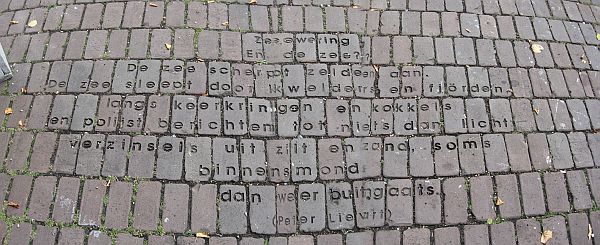 Zeewering
En de zee?
De zee scherpt zelden aan.
De zee sleept door kwelders en fjorden,
langs keerkringen en kokkels
en polijst berichten tot niets dan licht,
verzinsels uit zilt en zand, soms
binnensmonds
dan weer buitengaats.
(Peter